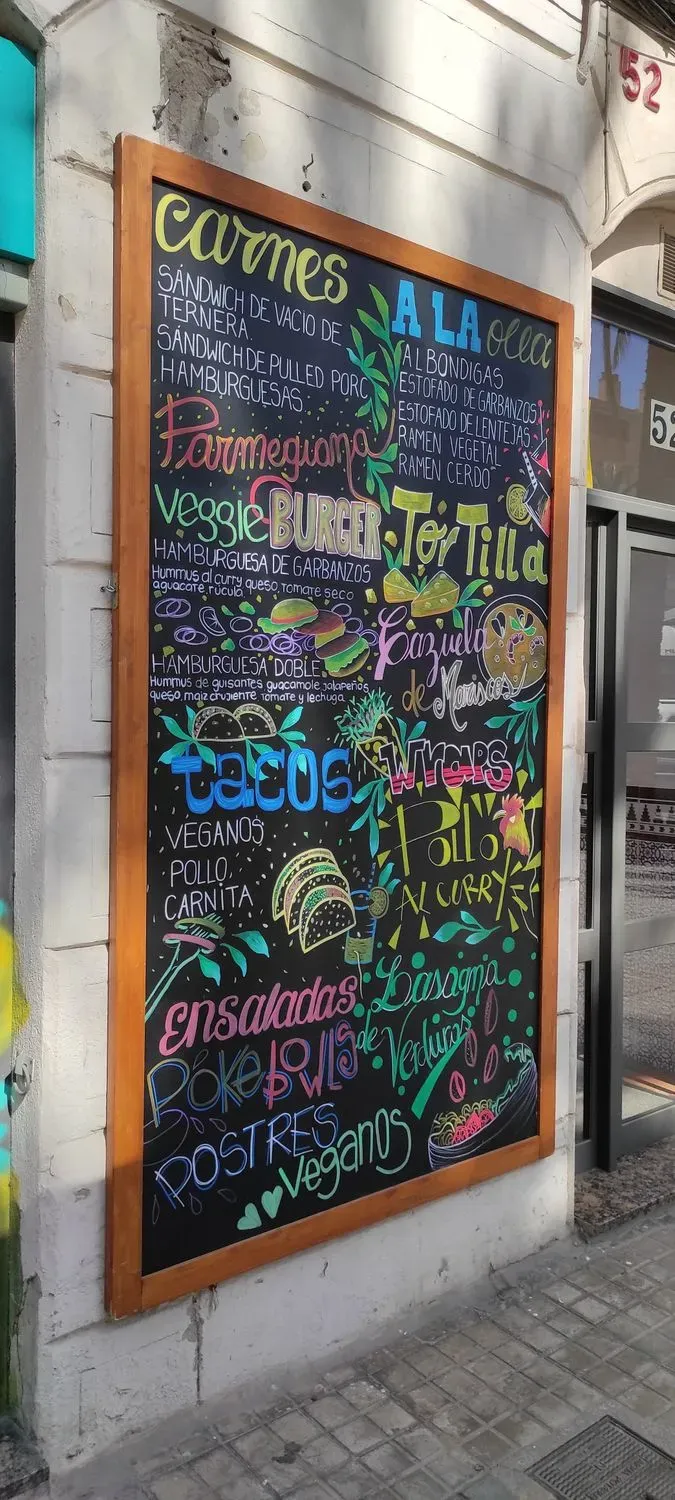 carnes
SÁNDWICH DE VACIO DE
TERNERA.
SÁNDWICH DE PULLED PORC
HAMBURGUESAS.
Parmegiana
veggie BURGER
HAMBURGUESA DE GARBANZOS
Hummus al curry queso, tomate seco
aguacate, rúcula,
HAMBURGUESA DOBLE
Hummus de guisantes guacamole jalapeños
queso, maiz crujiente tomate y lechuga
tacos
VEGANOS
POLLO,
CARNITA
ensaladas
Poke bowls
POSTRES
veganos
A LA olla
ALBONDIGAS
ESTOFADO DE GARBANZOS
ESTOFADO DE LENTEJAS
RAMEN VEGETAL
RAMEN CERDO
TorTilla
Cazuela
de Mariscos
Wraps
Pollo
AL CURRY
Lasagna
de Verduras
52
52